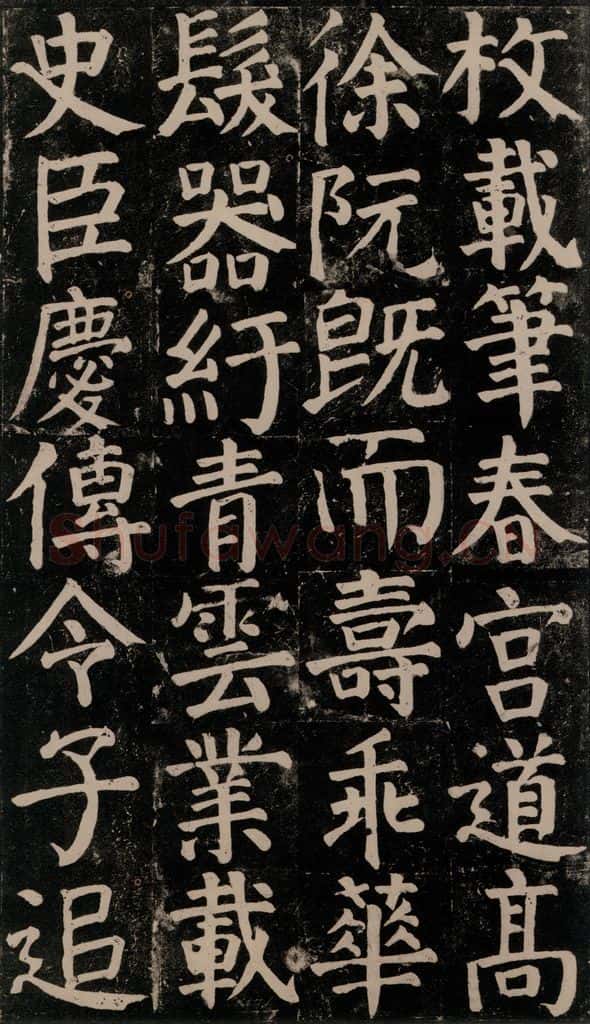 枚載筆春宮道高
徐阮既而壽乖華
髮器紆青雲業載
史臣慶傳令子追
Shufawang.CN